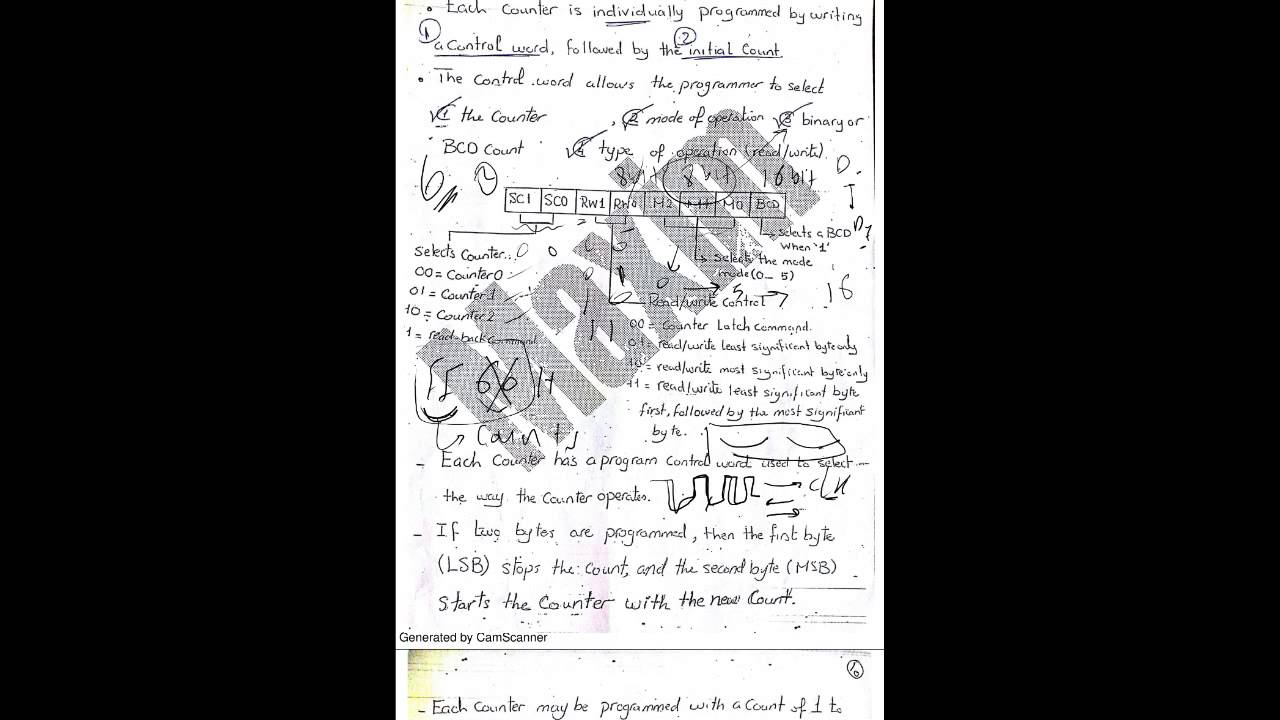 • Each Counter is individually programmed by writing
① ②
a Control word, followed by the initial Count.
• The Control word allows the programmer to select
1 the Counter , 2 mode of operation 3 binary or
BCD Count 4 type of operation (read/write).
8 bit 8 bit 16 bit
SC1 SC0 RW1 RW0 M2 M1 M0 BCD
selects a BCD
when '1'
Selects Counter.
selects the mode
00 = Counter0
mode (0 - 5)
16
01 = Counter1
Read/write Control
10 = Counter2
00 = Counter Latch command.
1 = read-back command
01 = read/write least significant byte only
10 = read/write most significant byte only
11 = read/write least significant byte
first, followed by the most significant
byte.
- Each Counter has a program control word used to select
the way the Counter operates.
clk
- If two bytes are programmed, then the first byte
(LSB) stops the count, and the second byte (MSB)
starts the Counter with the new Count.
Generated by CamScanner
6
- Each Counter may be programmed with a Count of 1 to